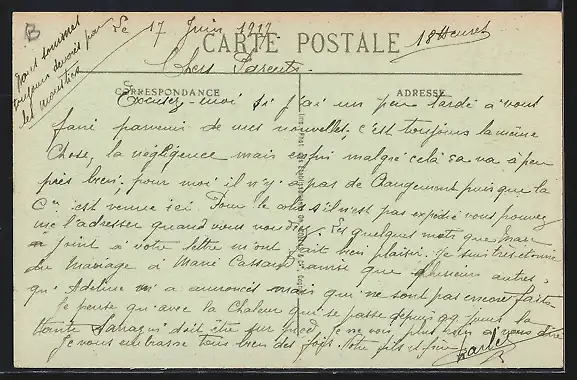 B
Nous sommes
toujours dévorés par
les moustics
Le 17 Juin 1917
18 Heures
CARTE POSTALE
Chers Parents.
CORRESPONDANCE
ADRESSE
Excusez-moi si j'ai un peu tardé a vous
faire parvenir de mes nouvelles, c'est toujours la même
Chose, la négligence mais enfin malgré celà sa va à peu
près bien. pour moi il n'y a pas de Changement puis que la
Cie est venue ici. Pour le colis s'il n'est pas expédié vous pouvez
me l'adresser quand vous voudrez. Les quelques mots que Marc
a joint a votre lettre m'ont fait bien plaisir. Je suis très étonné
du Mariage à Marie ainsi que plusieurs autres,
qu'Adeline m'a annoncés mais qui ne sont pas encore faits
Je pense qu'avec la Chaleur qui se passe depuis qq jours la
tante doit être sur pied. Je ne vois plus rien a vous dire
Je vous embrasse tous bien des fois. Votre fils et frère